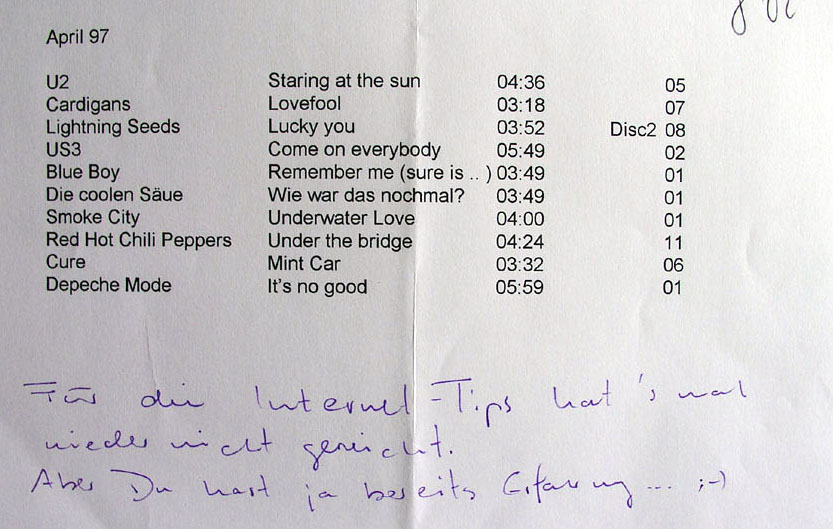 April 97
U2 Staring at the sun 04:36 05
Cardigans Lovefool 03:18 07
Lightning Seeds Lucky you 03:52 Disc2 08
US3 Come on everybody 05:49 02
Blue Boy Remember me (sure is .. ) 03:49 01
Die coolen Säue Wie war das nochmal? 03:49 01
Smoke City Underwater Love 04:00 01
Red Hot Chili Peppers Under the bridge 04:24 11
Cure Mint Car 03:32 06
Depeche Mode It's no good 05:59 01
Für die Internet-Tips hat's mal
wieder nicht gereicht.
Aber Du hast ja bereits Erfahrung... ;-)